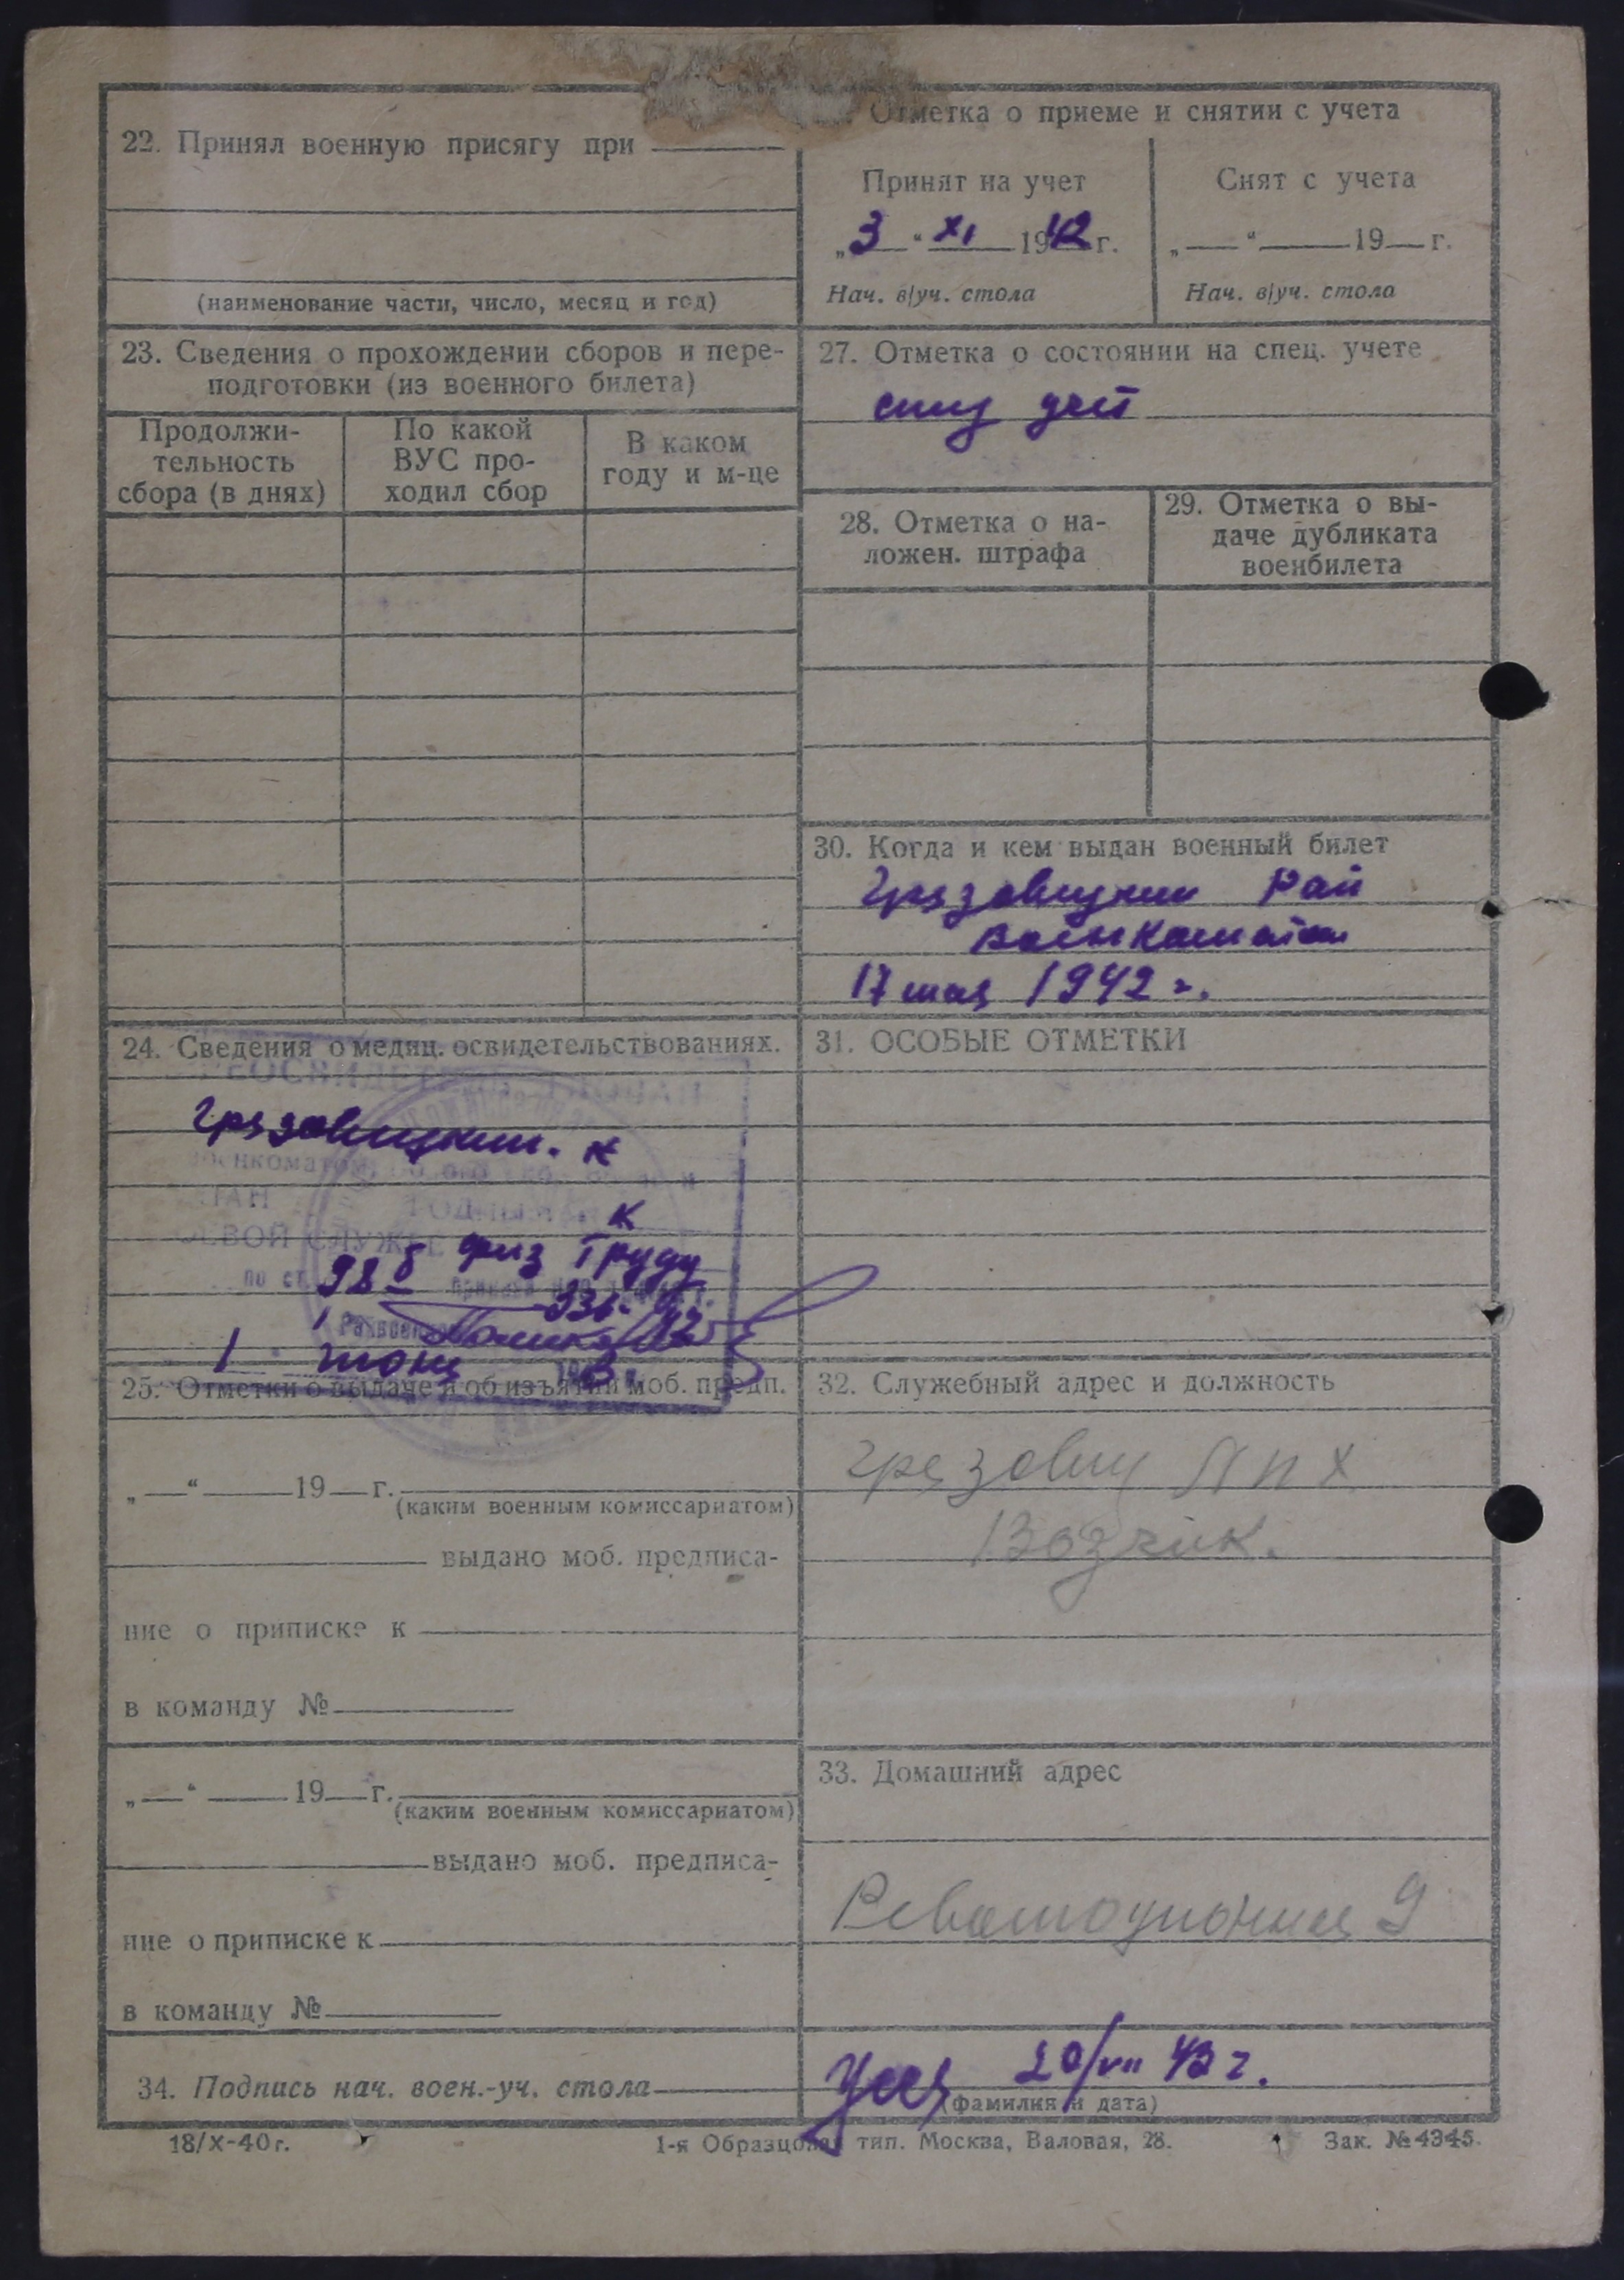 22. Принял военную присягу при
(наименование части, число, месяц и год)
Отметка о приеме и снятии с учета
Принят на учет
„3“ XI 1942 г.
Нач. в/уч. стола
Снят с учета
„ “ 19 г.
Нач. в/уч. стола
23. Сведения о прохождении сборов и пере-
подготовки (из военного билета)
Продолжи-
тельность
сбора (в днях)
По какой
ВУС про-
ходил сбор
В каком
году и м-це
27. Отметка о состоянии на спец. учете
28. Отметка о на-
ложен. штрафа
29. Отметка о вы-
даче дубликата
военбилета
30. Когда и кем выдан военный билет
Грязовецким Рай
военкоматом
17 мая 1942 г.
24. Сведения о медиц. освидетельствованиях.
Грязовецким
военкоматом
ЕВОЙ СЛУЖБЕ К
по ст. 98 б физ труду
1 июня
31. ОСОБЫЕ ОТМЕТКИ
25. Отметки о выдаче и об изъятии моб. предп.
„ “ 19 г.
(каким военным комиссариатом)
выдано моб. предписа-
ние о приписке к
в команду №
„ “ 19 г.
(каким военным комиссариатом)
выдано моб. предписа-
ние о приписке к
в команду №
32. Служебный адрес и должность
Грязовец ЛПХ
Возчик.
33. Домашний адрес
Революционная 9
34. Подпись нач. воен.-уч. стола
20/VII 42 г.
(фамилия и дата)
18/X-40 г.
1-я Образцовая тип. Москва, Валовая, 28.
Зак. № 4345.